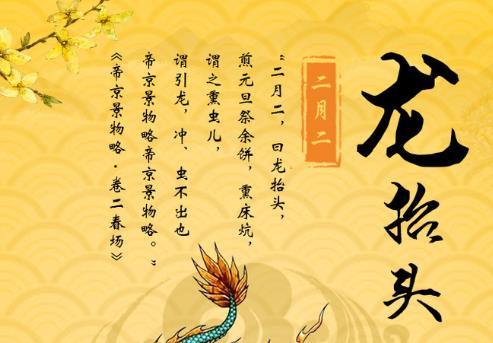 龙抬头
二月二
“二月二，曰龙抬头，
煎元旦祭余饼，熏床炕，
谓之熏虫儿，
谓引龙，冲、虫不出也
帝京景物略帝京景物略。”
《帝京景物略·卷二春场》